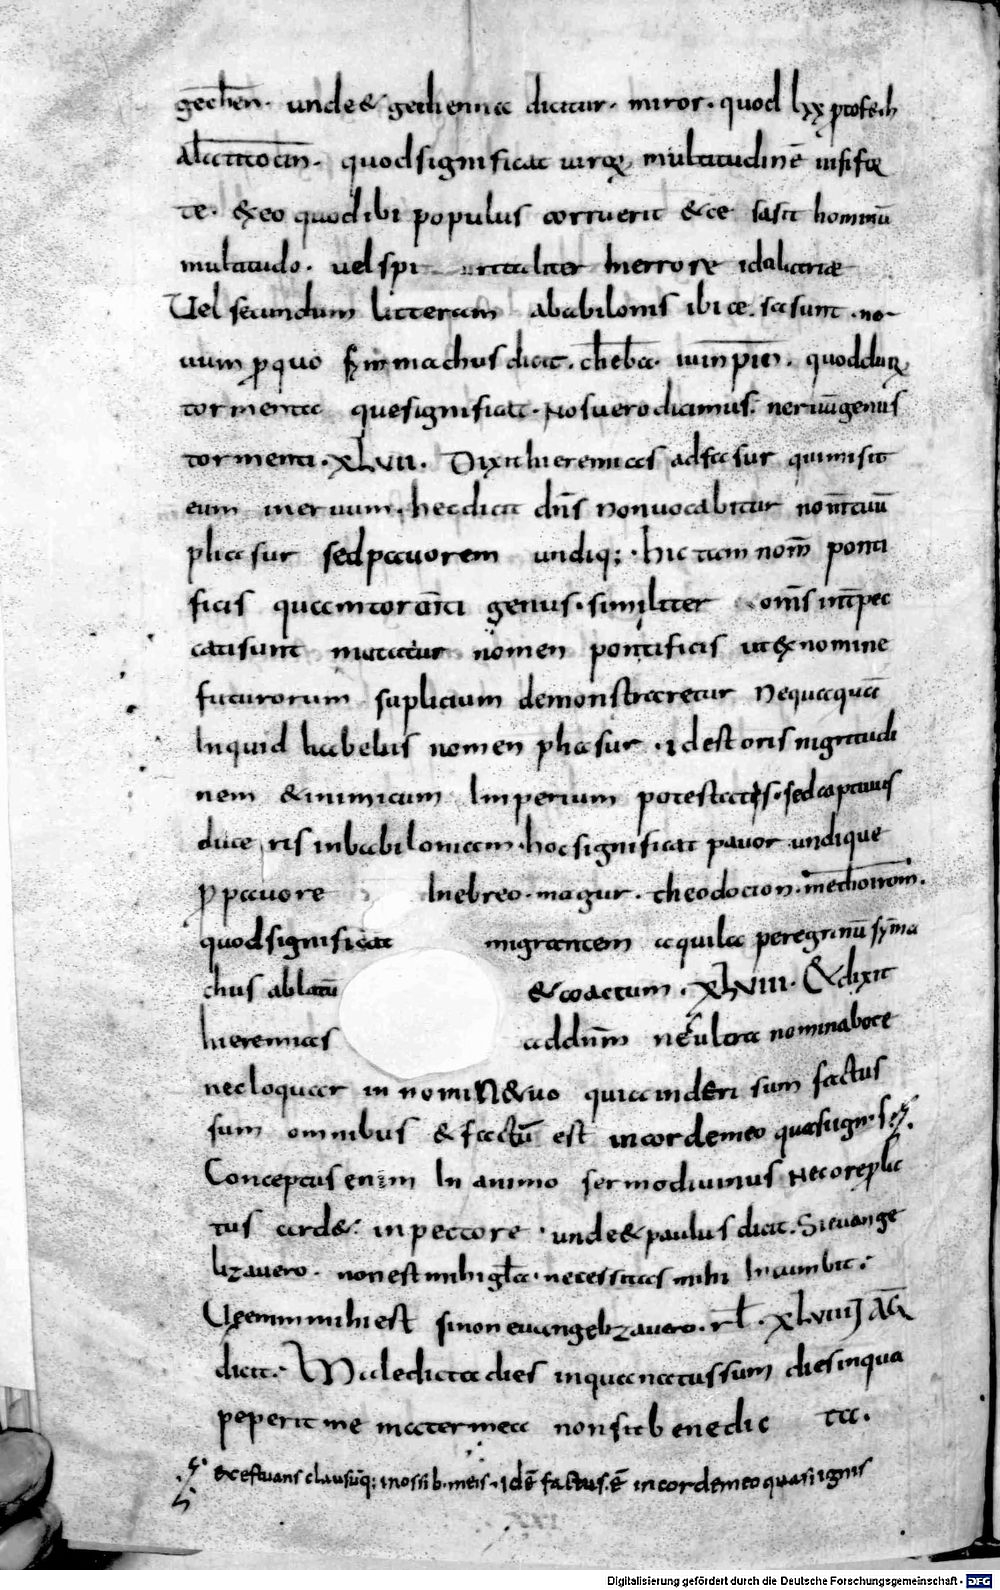 gechen. unde & gechenna dicitur. miror. quod lxx pro tofech
quod significat uirorum multitudinē
te. & eo quod ibi populus corruerit & cesa sit hominū
multitudo. uel spiritaliter in errore idolatriae
Uel secundum litteram a babilonis ibi cesa sunt. no-
uum ꝓ quo symmachus dicit. quoddam
tormenta que significat. Nos uero dicimus. neruū genus
tormenti. XLVII. Dixit hieremias ad fassur qui misit
eum in neruum. hec dicit dn̄s non uocabitur nom̄ tuū
phassur sed pauorem undiq;. hic tam nom̄ ponti
ficis quam tormīti genus. similiter omīs intp̄ec
cati sunt mutatur nomen pontificis ut ex nomine
futurorum suplicium demonstraretur Nequaquā
Inquid habebis nomen phasur. id est oris nigritudi
nem & inimicum Imperium potestatis. sed captiuus
duceris in babiloniam. hoc significat pauor undique
ꝓ pauore In ebreo. magur. theodocion.
quod significat migrantem aquila peregrinū sym̄a
chus ablatū & coactum. XLVIII. & dixit
hieremias ad dn̄m ne ultra nominabo te
nec loquar in nomine tuo quia inderi sum factus
sum omnibus & factū est in corde meo quasi ign
Conceptus enim In animo sermo diuinus Nec ore plic
tus ard&. in pectore. unde & paulus dicit. Si euange
lizauero. non est mihi gl̄a. necessitas mihi Incumbit.
Uę enim mihi est si non euangelizauero. rl̄. XLVIIIJ
dicit. Maledicta dies in qua natus sum dies in qua
peperit me mater mea non sit benedic ta.
exestuans claususq; in ossib. meis. id ē factus ē in corde meo quasi ignis
XXI
Digitalisierung gefördert durch die Deutsche Forschungsgemeinschaft - DFG